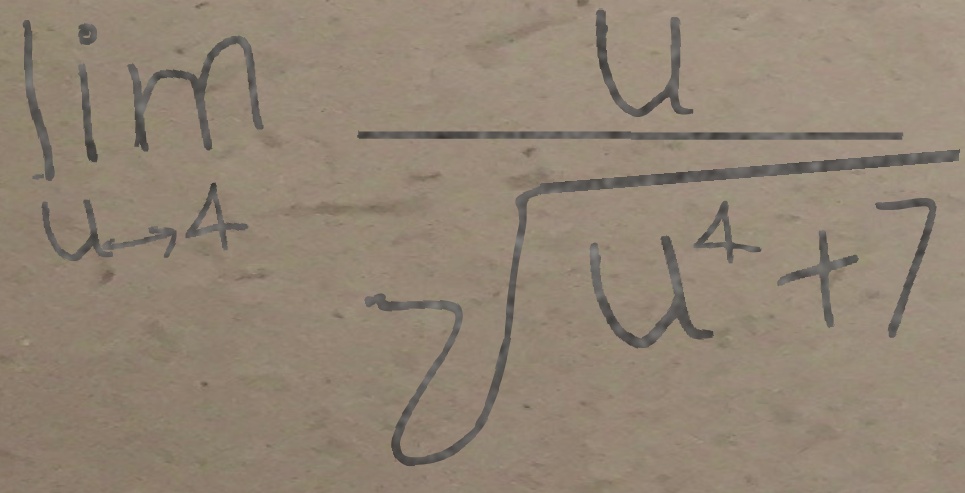 \lim_{u \to 4} \frac{u}{\sqrt{u^4+7}}